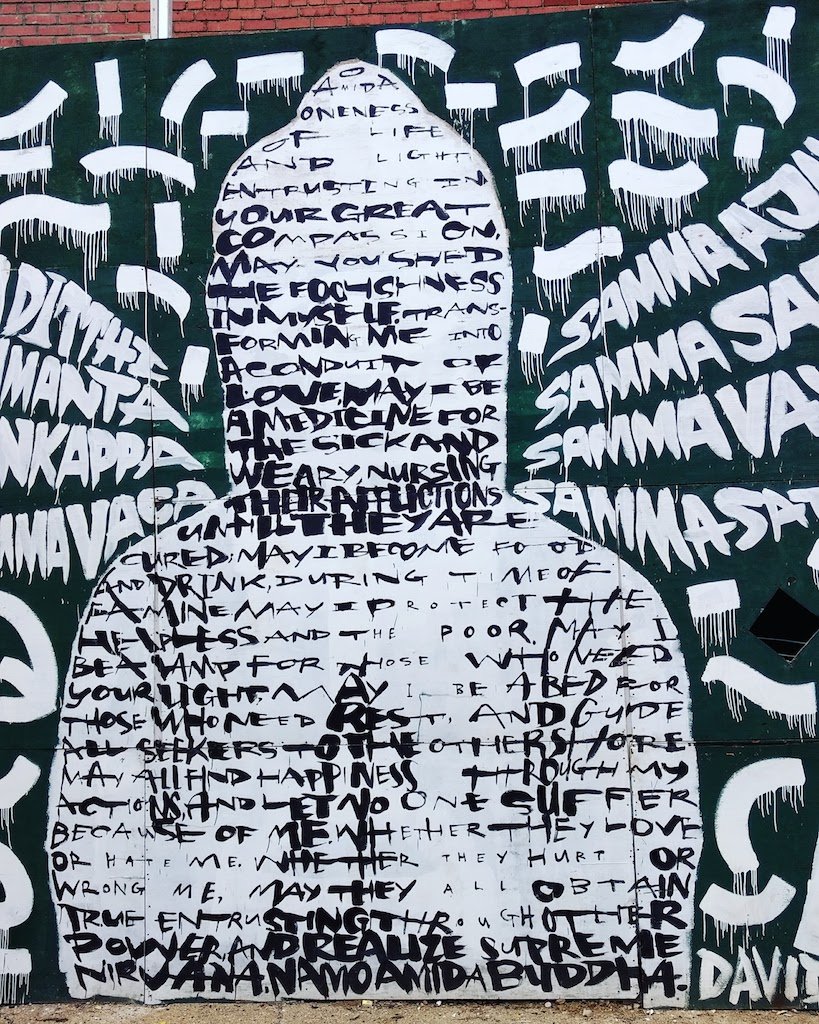 O
AMIDA
ONENESS
OF LIFE
AND LIGHT
ENTRUSTING IN
YOUR GREAT
COMPASSION,
MAY YOU SHED
THE FOOLISHNESS
IN MYSELF, TRANS-
FORMING ME INTO
A CONDUIT OF
LOVE. MAY I BE
A MEDICINE FOR
THE SICK AND
WEARY, NURSING
THEIR AFFLICTIONS
UNTILL THEY ARE
CURED; MAY I BECOME FOOD
AND DRINK, DURING TIME OF
FAMINE MAY I PROTECT THE
HELPLESS AND THE POOR. MAY I
BE A LAMP FOR THOSE WHO NEED
YOUR LIGHT, MAY I BE A BED FOR
THOSE WHO NEED REST, AND GUIDE
ALL SEEKERS TO THE OTHER SHORE
MAY ALL FIND HAPPINESS THROUGH MY
ACTIONS, AND LET NO ONE SUFFER
BECAUSE OF ME. WHETHER THEY LOVE
OR HATE ME. WHETHER THEY HURT OR
WRONG ME, MAY THEY ALL OBTAIN
TRUE ENTRUSTING THROUGH OTHER
POWER AND REALIZE SUPREME
NIRVANA. NAMO AMIDA BUDDHA.
DITTHI
MANTA
NKAPPA
MMA VACA
SAMMA AJI
SAMMA SA
SAMMA VAY
SAMMA-SAT
DAVID